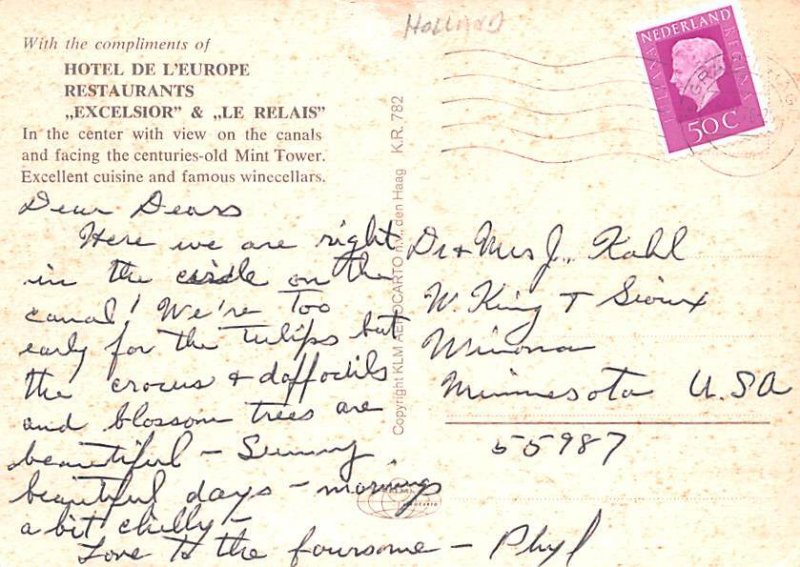 HOLLAND
With the compliments of
HOTEL DE L'EUROPE
RESTAURANTS
„EXCELSIOR” & „LE RELAIS”
In the center with view on the canals
and facing the centuries-old Mint Tower.
Excellent cuisine and famous winecellars.
Dear Dears
Here we are right
in the circle on the
canal! We're Too
early for the Tulips but
the crocus & daffodils
and blossom trees are
beautiful - Sunny
beautiful days - mornings
a bit chilly -
Love to the foursome - Phyl
Copyright KLM AEROCARTO n.v. den Haag K.R. 782
NEDERLAND
JULIANA REGINA
50 C
Dr & Mrs J. Kahl
W. King & Sioux
Winona
Minnesota U.S.A
55987